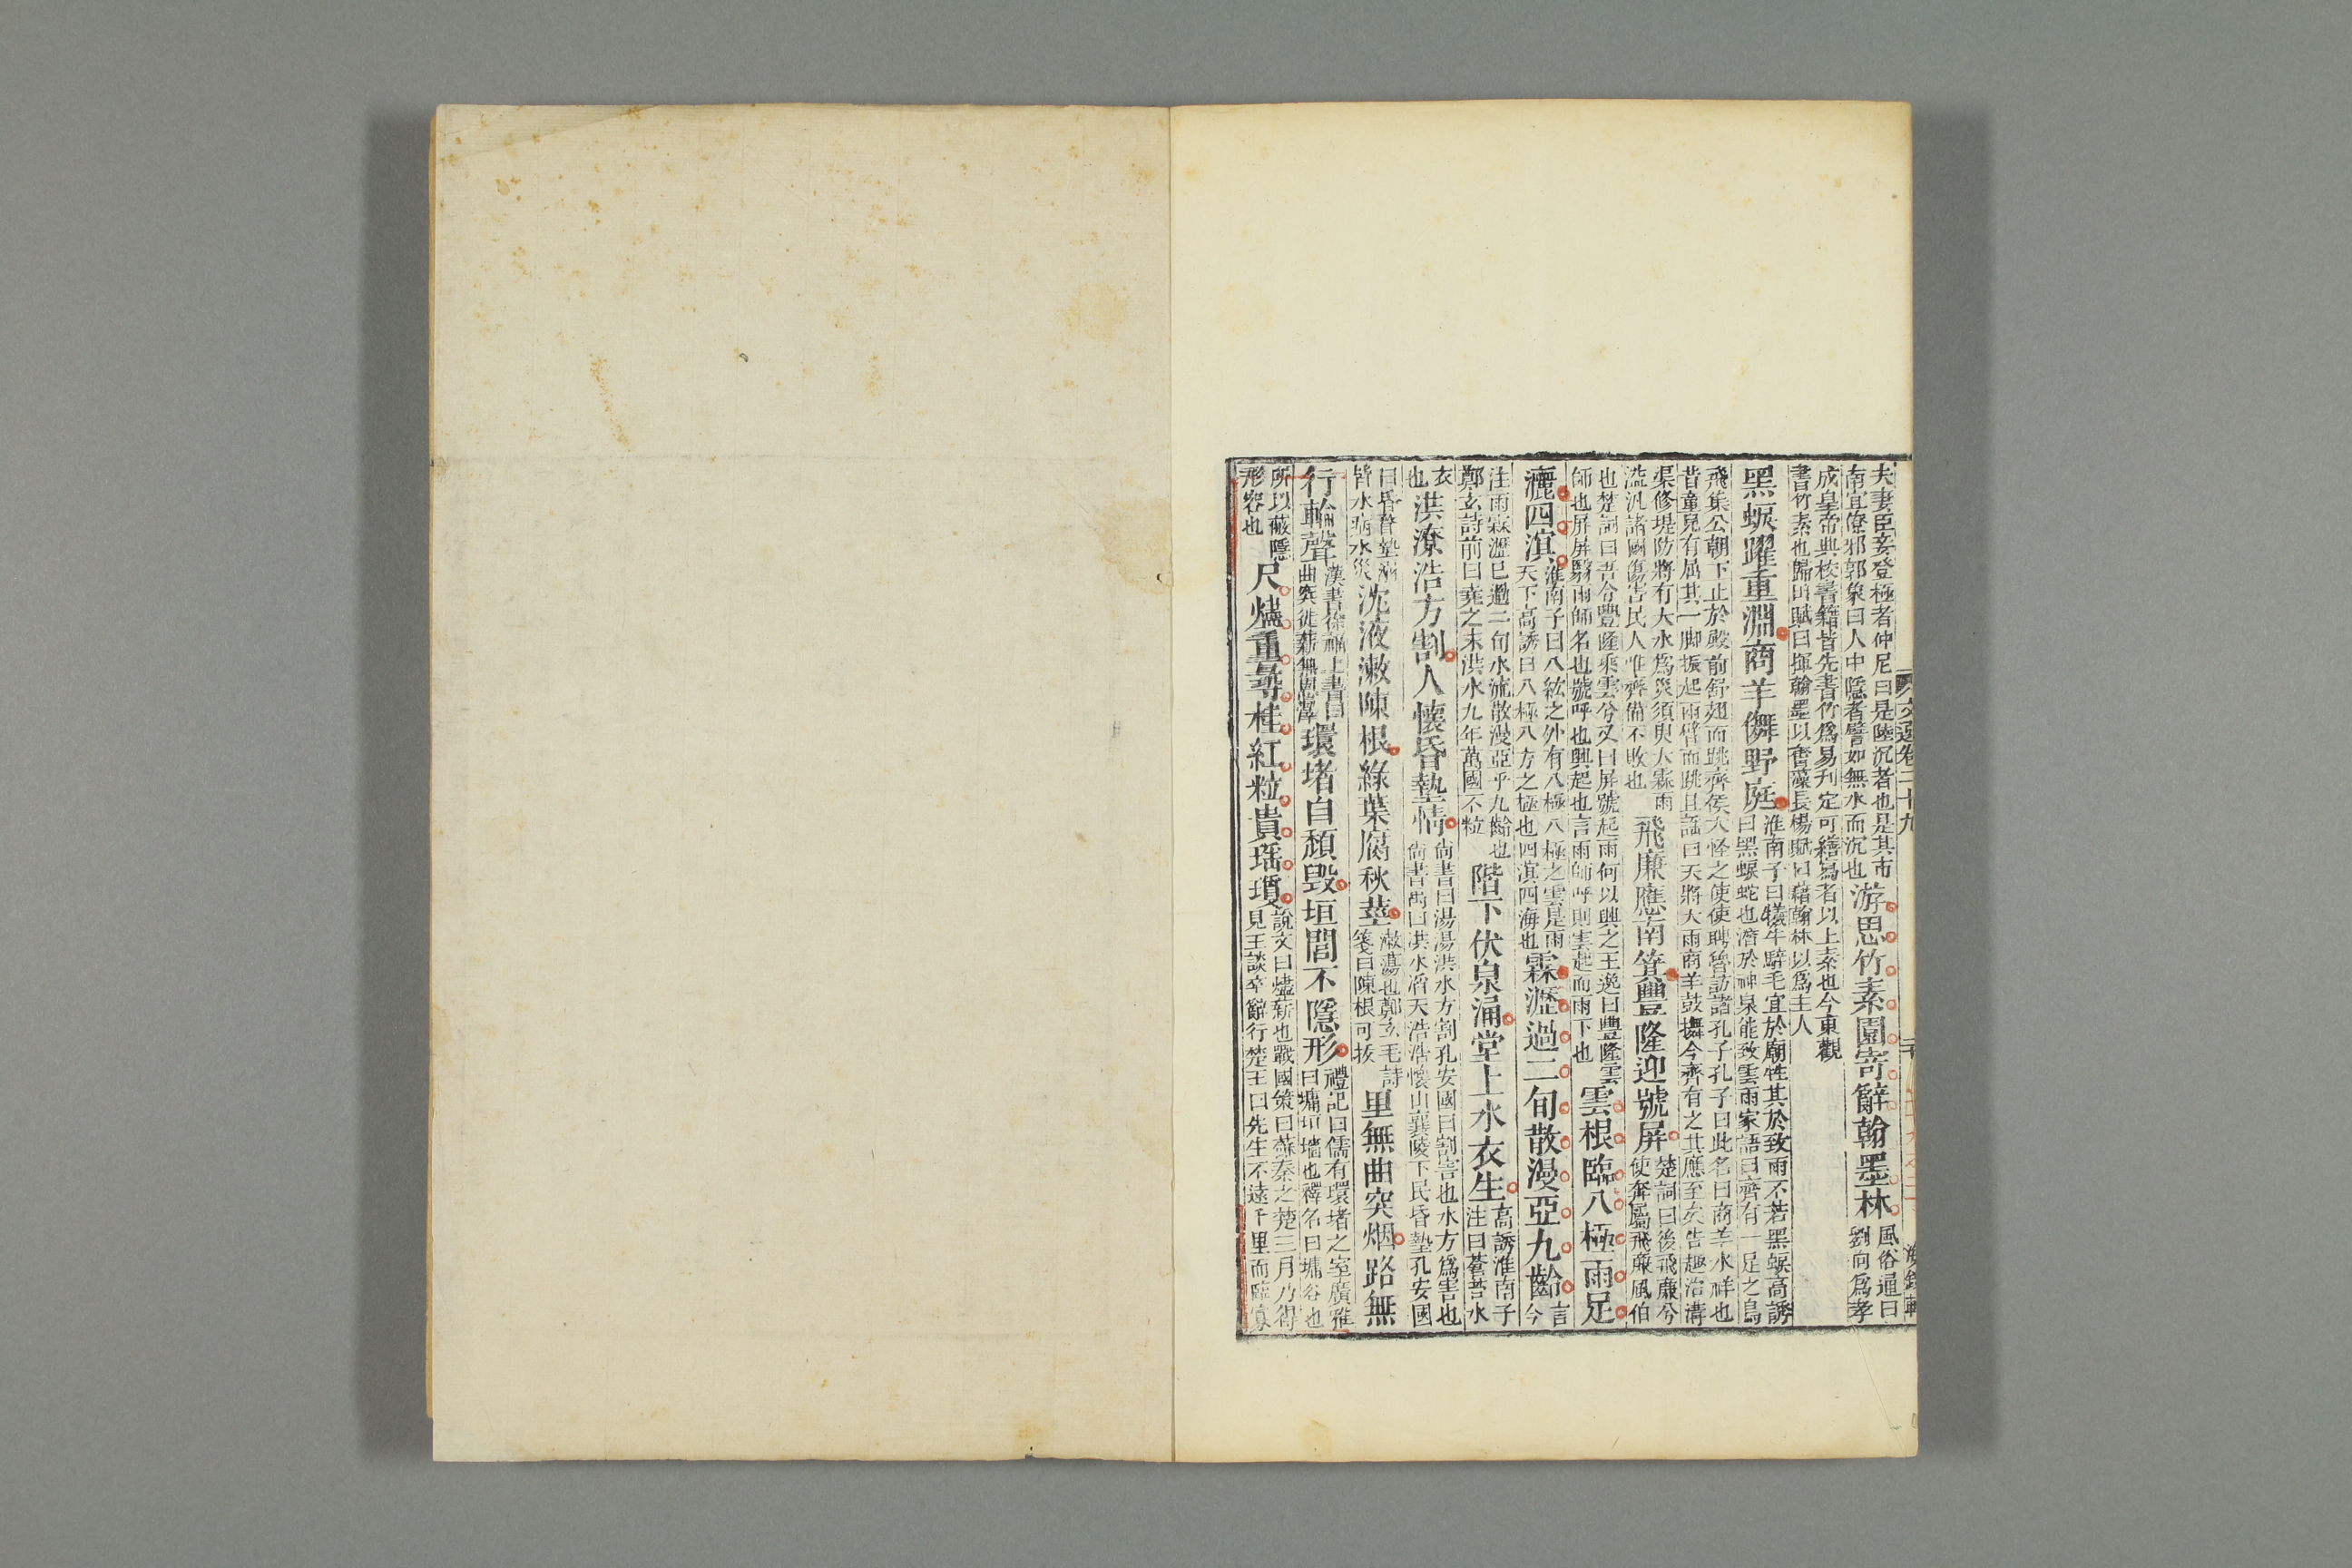 文選卷二十九
夫妻臣妾登極者仲尼曰是陸沉者也是其市
南宜僚邪郭象曰人中隱者譬如無水而沉也
游思竹素園寄辭翰墨林
風俗通曰
劉向爲孝
成皇帝典校書籍皆先書竹爲易刊定可繕寫者以上素也今東觀
書竹素也歸田賦曰揮翰墨以奮藻長楊賦曰藉翰林以爲主人
黑蜧躍重淵商羊儛野庭
淮南子曰犧牛騂毛宜於廟牲其於致雨不若黑蜧高誘
曰黑蜧蛇也潛於神泉能致雲雨家語曰齊有一足之鳥
飛集公朝下止於殿前舒翅而跳齊侯大怪之使使聘魯訪諸孔子孔子曰此名曰商羊水祥也
昔童兒有屈其一脚振起兩臂而跳且謡曰天將大雨商羊鼓儛今齊有之其應至矣告趣治溝
渠修堤防將有大水爲災須臾大霖雨
溢汎諸國傷害民人惟齊備不敗也
飛廉應南箕豐隆迎號屏
楚詞曰後飛廉兮
使奔屬飛廉風伯
也楚詞曰吾令豐隆乘雲兮又曰屏號起雨何以興之王逸曰豐隆雲
師也屏屏翳雨師名也號呼也興起也言雨師呼則雲起而雨下也
雲根臨八極雨足
灑四溟
淮南子曰八紘之外有八極八極之雲是雨
天下高誘曰八極八方之極也四溟四海也
霖瀝過二旬散漫亞九齡
言
今
注雨霖瀝已過二旬水流散漫亞乎九齡也
鄭玄詩前曰堯之末洪水九年萬國不粒
階下伏泉涌堂上水衣生
高誘淮南子
注曰蒼苔水
衣
也
洪潦浩方割人懷昏墊情
尚書曰湯湯洪水方割孔安國曰割害也水方爲害也
尚書禹曰洪水滔天浩浩懷山襄陵下民昏墊孔安國
曰昏瞀墊溺
皆水病水災
沈液漱陳根綠葉腐秋莖
漱蕩也鄭玄毛詩
箋曰陳根可拔
里無曲突烟路無
行輪聲
漢書徐福上書曰
曲突徙薪無恩澤
環堵自頽毁垣閭不隱形
禮記曰儒有環堵之室廣雅
曰墉垣墻也釋名曰墉容也
所以蔽隱
形容也
尺燼重尋桂紅粒貴瑶瓊
說文曰燼薪也戰國策曰蘇秦之楚三月乃得
見王談卒辭行楚王曰先生不遠千里而臨寡